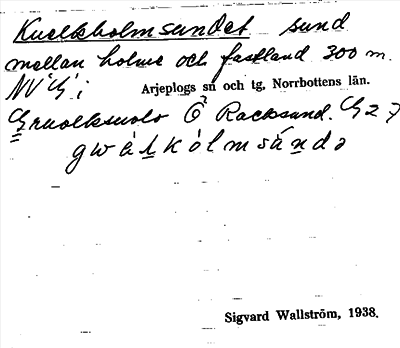 Kuolkholmsundet sund
mellan holme och fastland 300 m.
NV Gʹ i
Arjeplogs sn och tg, Norrbottens län.
Gruolksuolo Ö Racksund. G 27
gwålkólmsúndə
Sigvard Wallström, 1938.